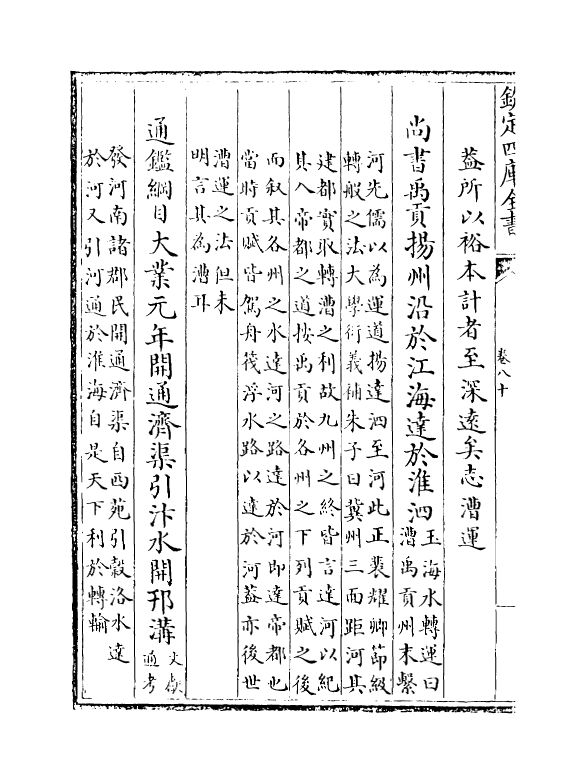 欽定四庫全書
卷八十
葢所以裕本計者至深遠矣志漕運
尚書禹貢揚州沿於江海達於淮泗
玉海水轉運曰
漕禹貢州末繫
河先儒以為運道揚達泗至河此正裴耀卿節級
轉般之法大學衍義補朱子曰冀州三面距河其
建都實取轉漕之利故九州之終皆言達河以紀
其入帝都之道按禹貢於各州之下列貢賦之後
而叙其各州之水達河之路達於河即達帝都也
當時貢賦皆駕舟筏浮水路以達於河葢亦後世
漕運之法但未
明言其為漕耳
通鑑綱目大業元年開通濟渠引汴水開邗溝
文獻
通考
發河南諸郡民開通濟渠自西苑引穀洛水達
於河又引河通於淮海自是天下利於轉輸